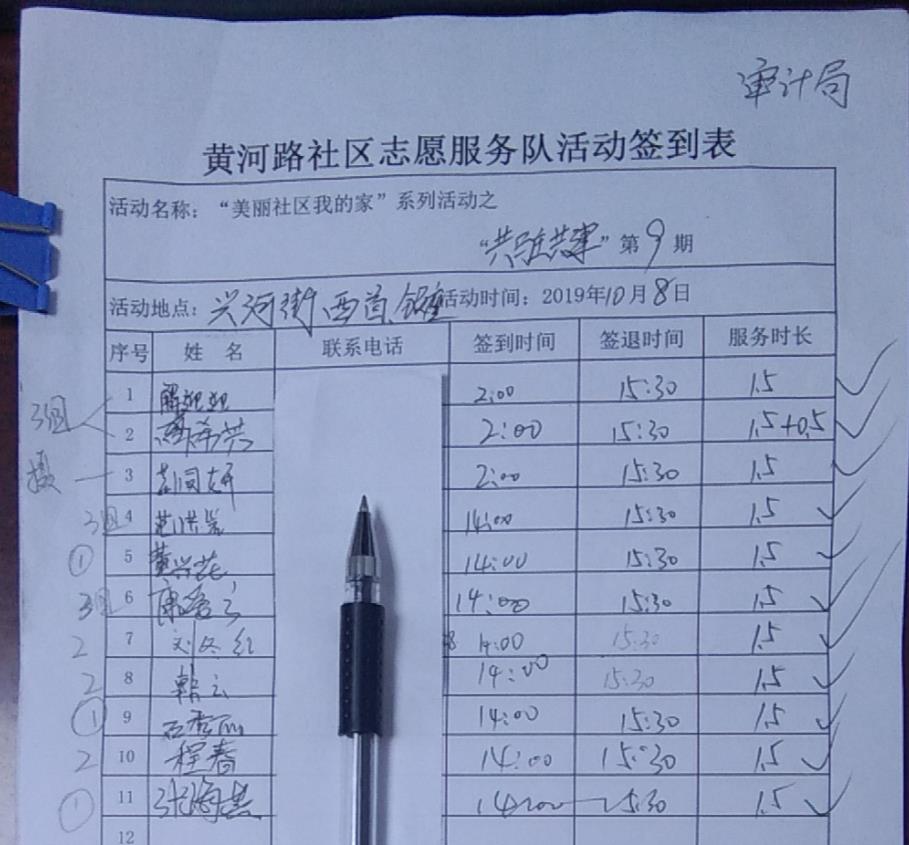 审计局
黄河路社区志愿服务队活动签到表
活动名称：“美丽社区我的家”系列活动之
“共驻共建”第9期
活动地点：兴河街西首 活动时间：2019年10月8日
序号 姓名 联系电话 签到时间 签退时间 服务时长
3组 1 2:00 15:30 1.5
2 2:00 15:30 1.5+0.5
摄 3 2:00 15:30 1.5
3组 4 范洪岩 14:00 15:30 1.5
① 5 黄兴花 14:00 15:30 1.5
3组 6 陈爱云 14:00 15:30 1.5
2 7 刘冬红 14:00 15:30 1.5
2 8 韩云 14:00 15:30 1.5
① 9 石秀丽 14:00 15:30 1.5
2 10 程春 14:00 15:30 1.5
① 11 14:00 15:30 1.5
12